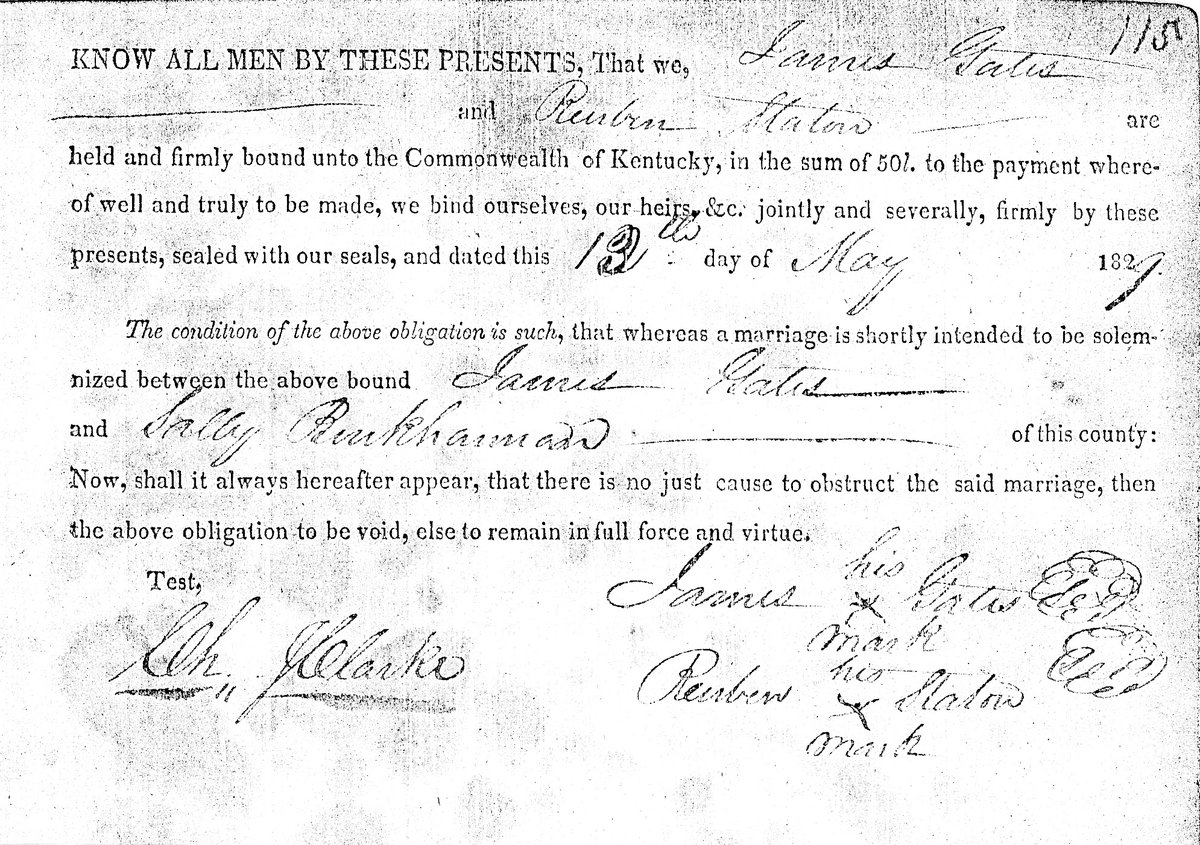 115
KNOW ALL MEN BY THESE PRESENTS, That we, James Gates
and Reuben Staton are
held and firmly bound unto the Commonwealth of Kentucky, in the sum of 50l. to the payment where-
of well and truly to be made, we bind ourselves, our heirs, &c. jointly and severally, firmly by these
presents, sealed with our seals, and dated this 13th day of May 1829
The condition of the above obligation is such, that whereas a marriage is shortly intended to be solem-
nized between the above bound James Gates
and Sally of this county:
Now, shall it always hereafter appear, that there is no just cause to obstruct the said marriage, then
the above obligation to be void, else to remain in full force and virtue.
Test,
James his x mark Gates
Clarke
Reuben his x mark Staton